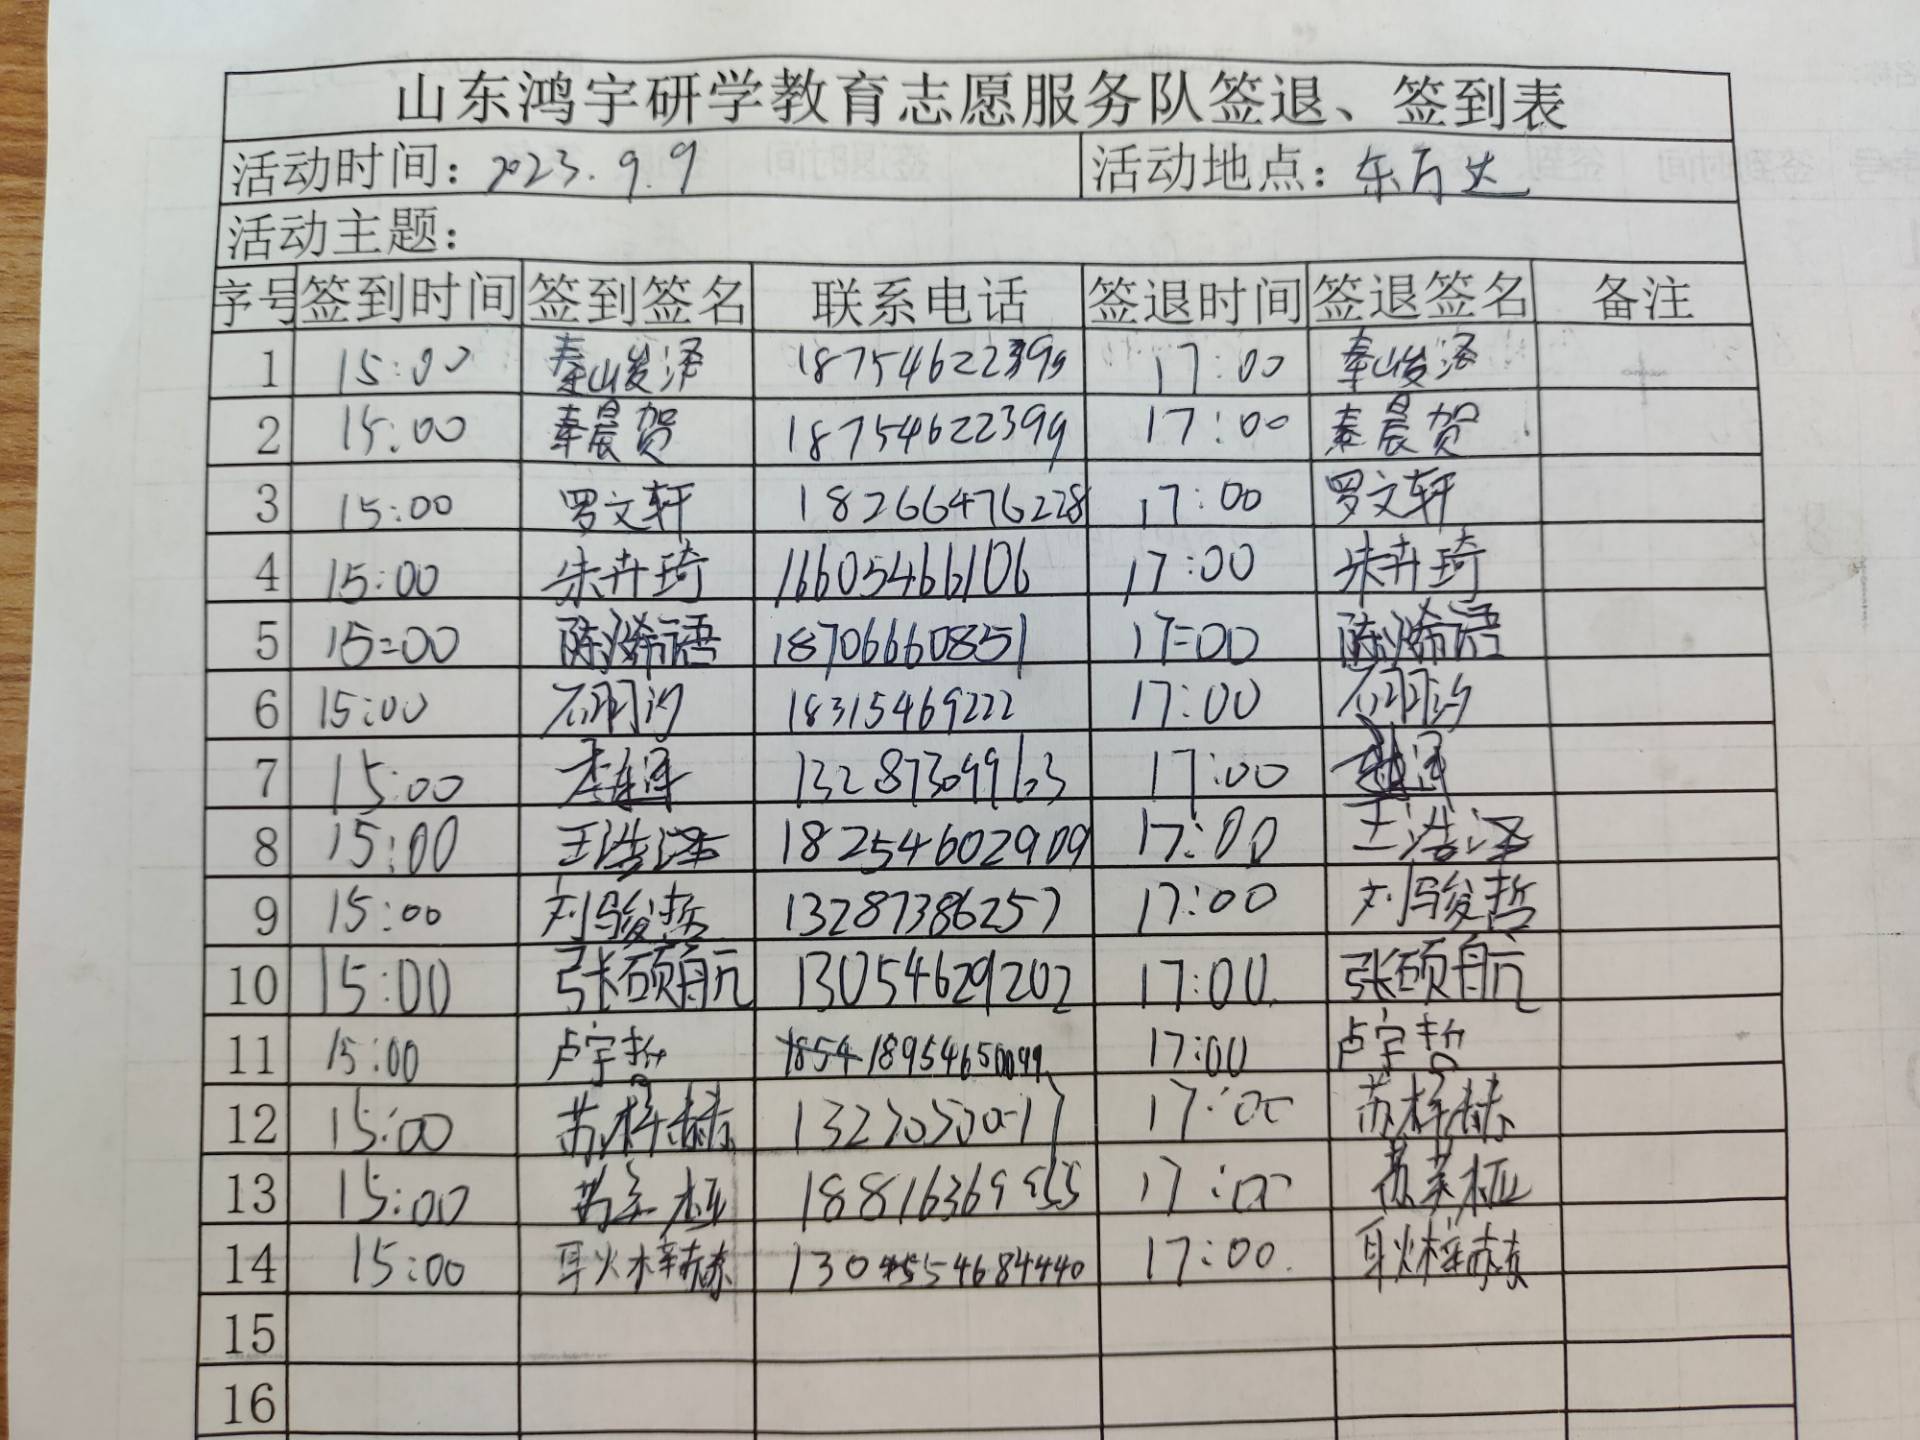 山东鸿宇研学教育志愿服务队签退、签到表
活动时间：2023.9.9 活动地点：东万达
活动主题：
序号 签到时间 签到签名 联系电话 签退时间 签退签名 备注
1 15:00 秦峻泽 18754622399 17:00 秦峻泽
2 15:00 秦晨贺 18754622399 17:00 秦晨贺
3 15:00 罗文轩 18266476228 17:00 罗文轩
4 15:00 朱卉琦 16605466106 17:00 朱卉琦
5 15:00 陈浠语 18706660851 17:00 陈浠语
6 15:00 石羽汐 18315469222 17:00 石羽汐
7 15:00 13287309963 17:00
8 15:00 王浩泽 18254602909 17:00 王浩泽
9 15:00 刘骏哲 13287386257 17:00 刘骏哲
10 15:00 张硕航 13054629202 17:00 张硕航
11 15:00 卢宇哲 18954650099 17:00 卢宇哲
12 15:00 苏梓赫 17:00 苏梓赫
13 15:00 17:00
14 15:00 耿梓赫 17:00 耿梓赫
15
16